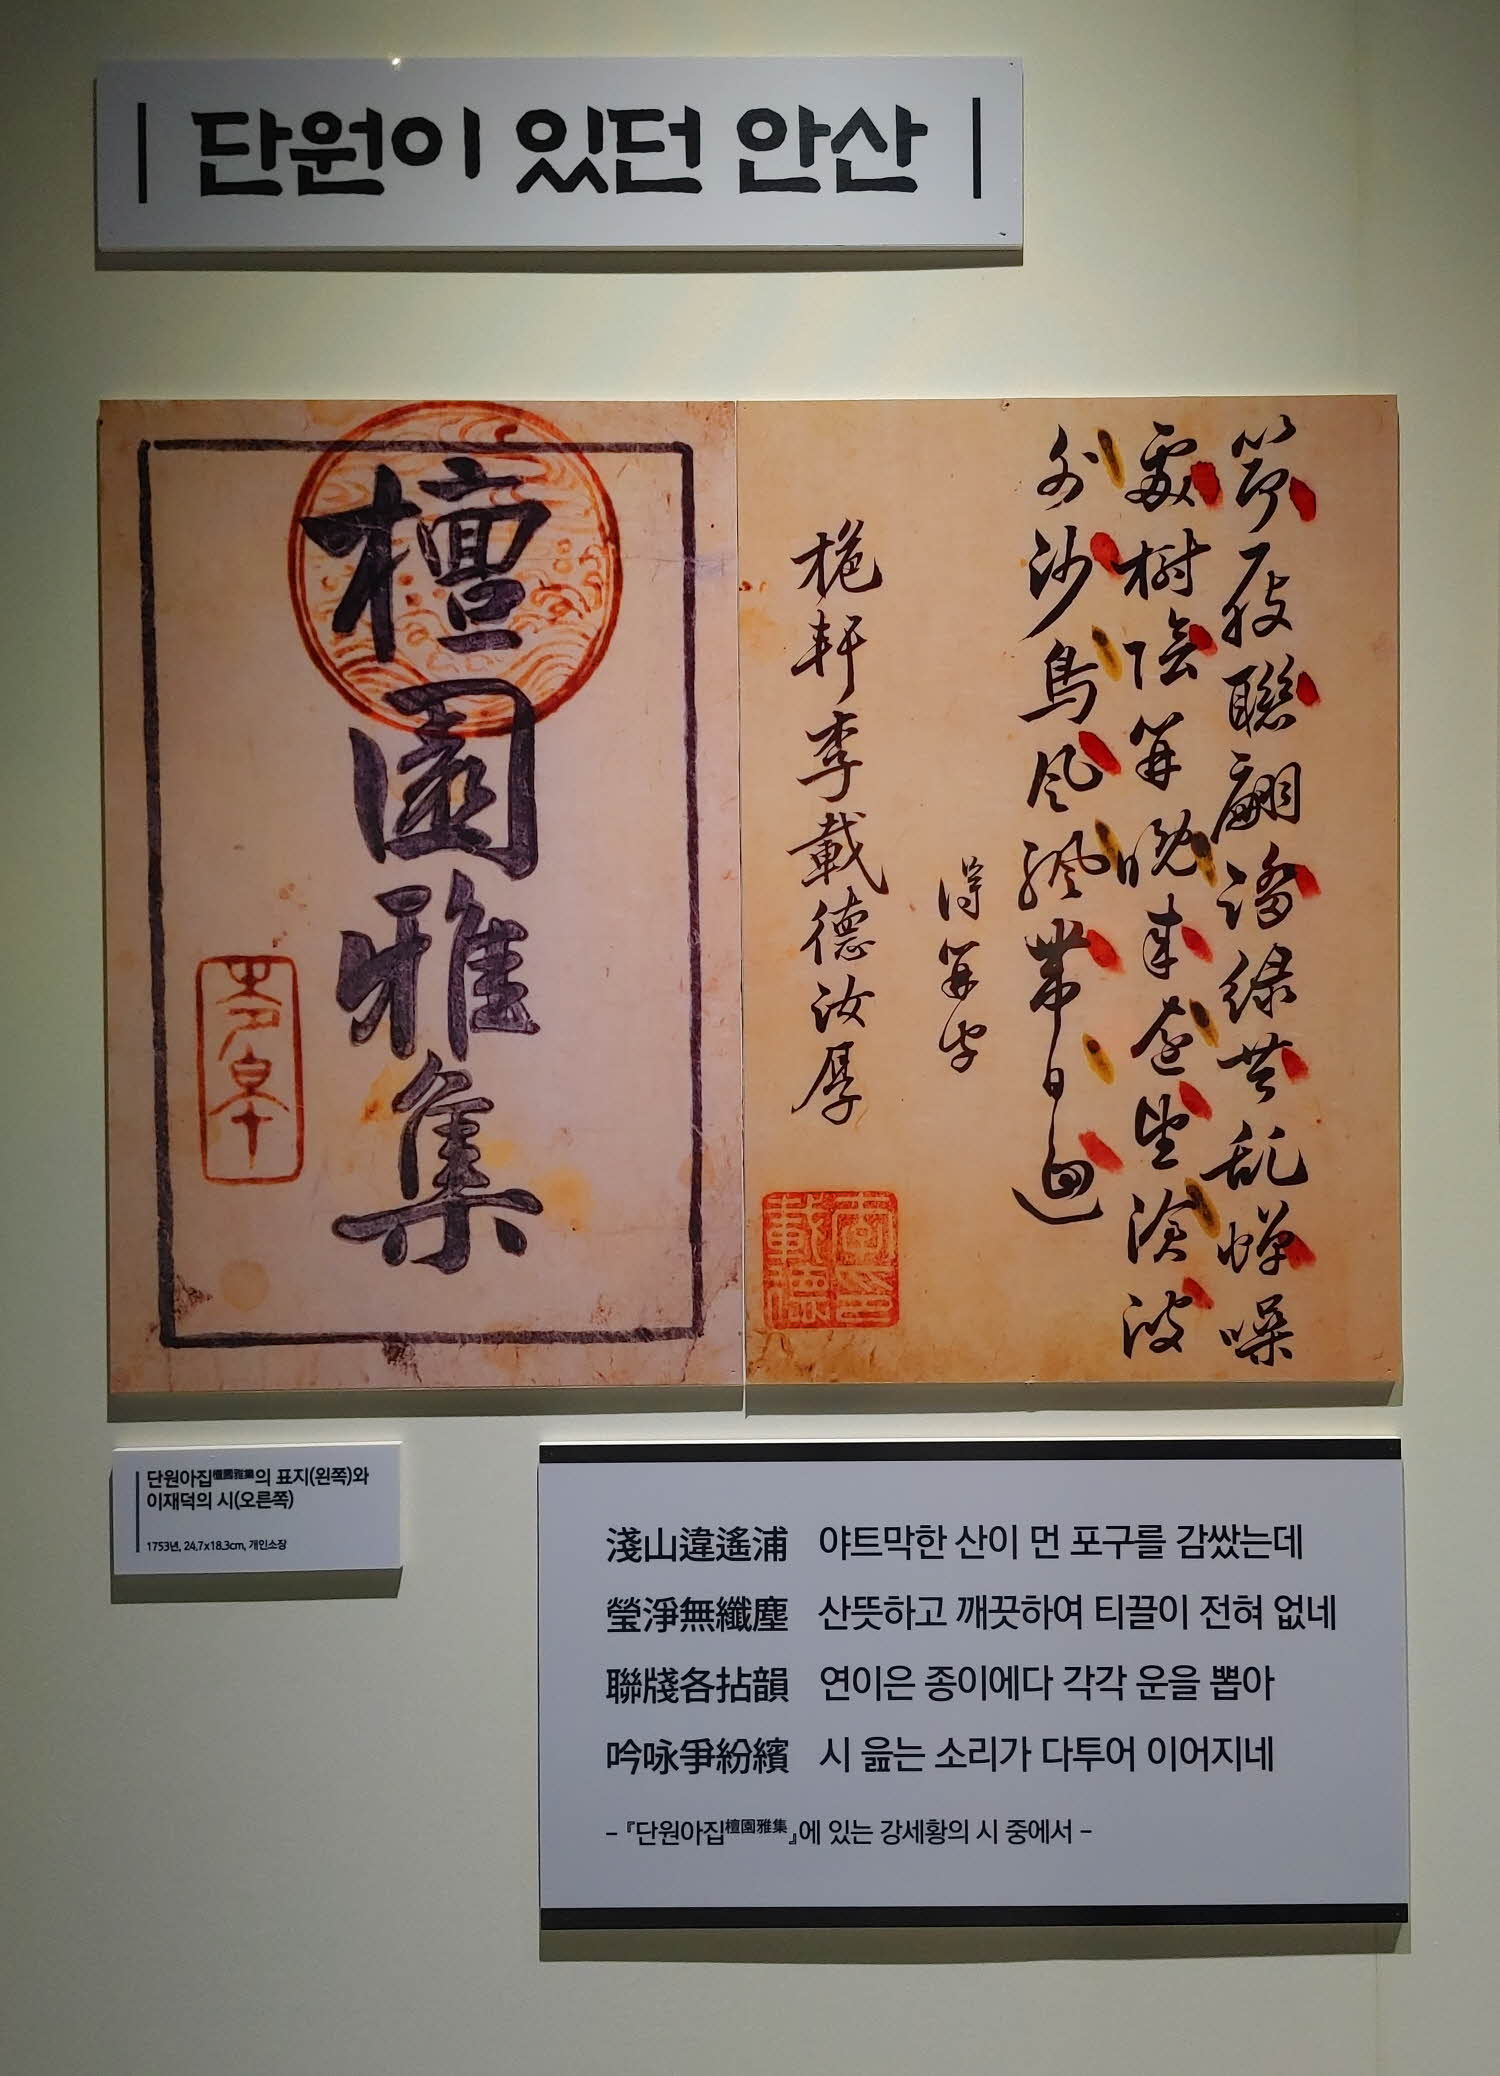 단원이 있던 안산
檀園雅集
筇屐聯翩踏綠蕪亂蟬噪
處樹陰篝晚來坐滄波
外沙鳥風帶日迴
得篝字
梔軒李載德汝厚
李載德印
단원아집檀園雅集의 표지(왼쪽)와
이재덕의 시(오른쪽)
1753년, 24.7x18.3cm, 개인소장
淺山違遙浦 야트막한 산이 먼 포구를 감쌌는데
瑩淨無纖塵 산뜻하고 깨끗하여 티끌이 전혀 없네
聯牋各拈韻 연이은 종이에다 각각 운을 뽑아
吟咏爭紛繽 시 읊는 소리가 다투어 이어지네
- 『단원아집檀園雅集』에 있는 강세황의 시 중에서 -